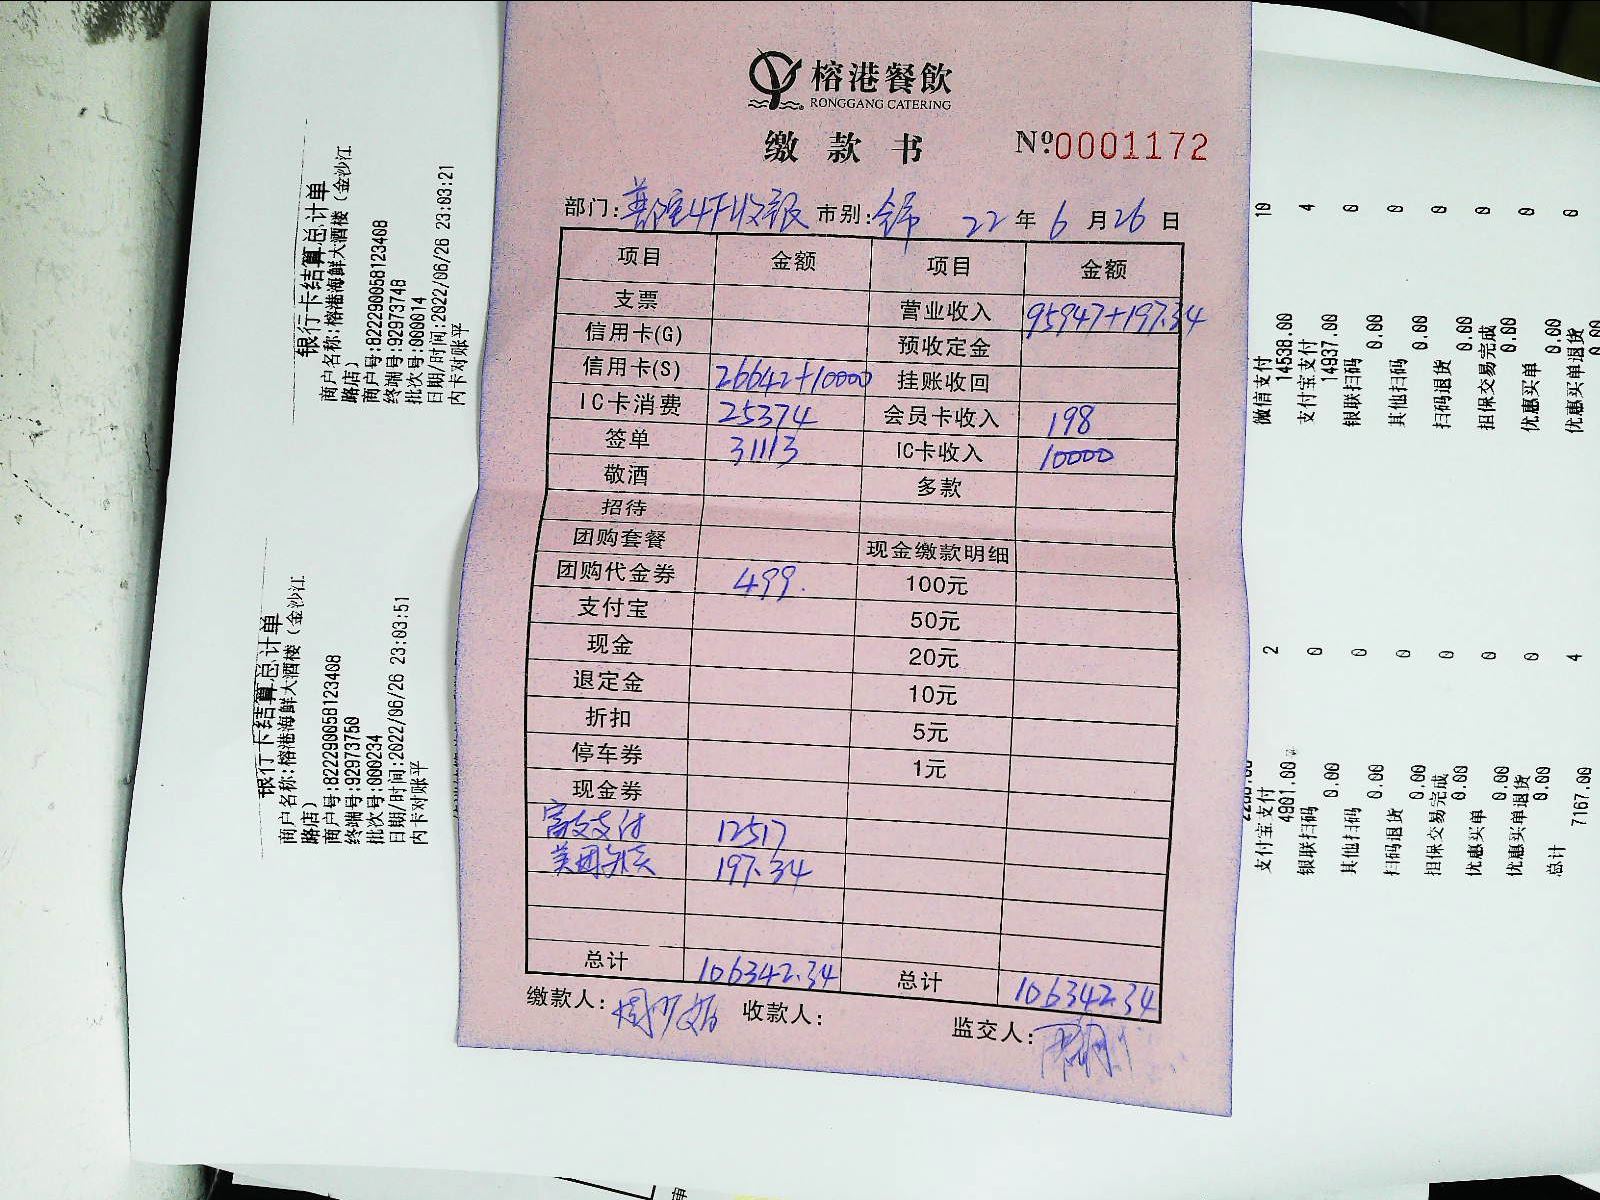 榕港餐飲
RONGGANG CATERING
缴款书 №0001172
部门: 4F收银 市别: 22年6月26日
项目 金额 项目 金额
支票 营业收入 95947+197.34
信用卡(G) 预收定金
信用卡(S) 26642+10000 挂账收回
IC卡消费 25374 会员卡收入 198
签单 31113 IC卡收入 10000
敬酒 多款
招待
团购套餐 现金缴款明细
团购代金券 499. 100元
支付宝 50元
现金 20元
退定金 10元
折扣 5元
停车券 1元
现金券
支付 12517
美团 197.34
总计 106342.34 总计 106342.34
缴款人: 收款人: 监交人:
银行卡结算总计单
商户名称:榕港海鲜大酒楼(金沙江
路店)
商户号:822290058123408
终端号:92973748
批次号:000014
日期/时间:2022/06/26 23:03:21
内卡对账平
银行卡结算总计单
商户名称:榕港海鲜大酒楼(金沙江
路店)
商户号:822290058123408
终端号:92973750
批次号:000234
日期/时间:2022/06/26 23:03:51
内卡对账平
微信支付 10
14538.00
支付宝支付 4
14937.00
银联扫码 0
0.00
其他扫码 0
0.00
扫码退货 0
0.00
担保交易完成 0
0.00
优惠买单 0
0.00
优惠买单退货 0
0.00
支付宝支付 2
4901.00
银联扫码 0
0.00
其他扫码 0
0.00
扫码退货 0
0.00
担保交易完成 0
0.00
优惠买单 0
0.00
优惠买单退货 0
0.00
总计 4
7167.00